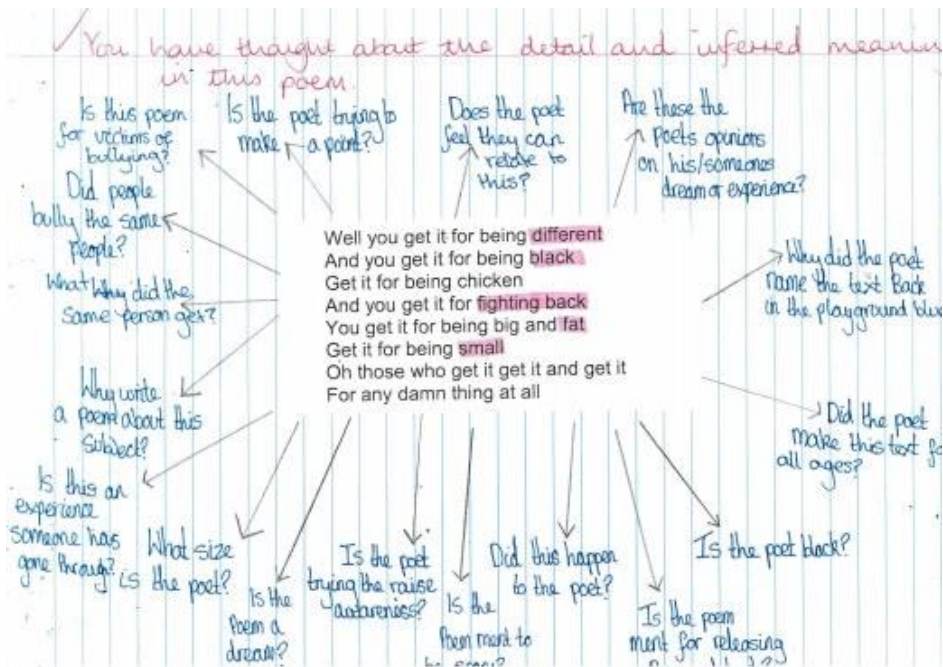 You have thought about the detail and inferred meanin
in this poem.
Is this poem
for victims of
bullying?
Is the poet trying to
make a point?
Does the poet
feel they can
relate to
this?
Are these the
poets opinions
on his/someones
dream or experience?
Did people
bully the same
people?
What Why did the
same person get?
Why write
a poem about this
subject?
Is this an
experience
someone has
gone through?
Well you get it for being different
And you get it for being black
Get it for being chicken
And you get it for fighting back
You get it for being big and fat
Get it for being small
Oh those who get it get it and get it
For any damn thing at all
Why did the poet
name the text Back
in the playground blu
Did the poet
make this text fo
all ages?
What size
is the poet?
Is the
Poem a
dream?
Is the poet
trying the raise
awareness?
Is the
Poem ment to
Did this happen
to the poet?
Is the poem
ment for releasing
Is the poet black?